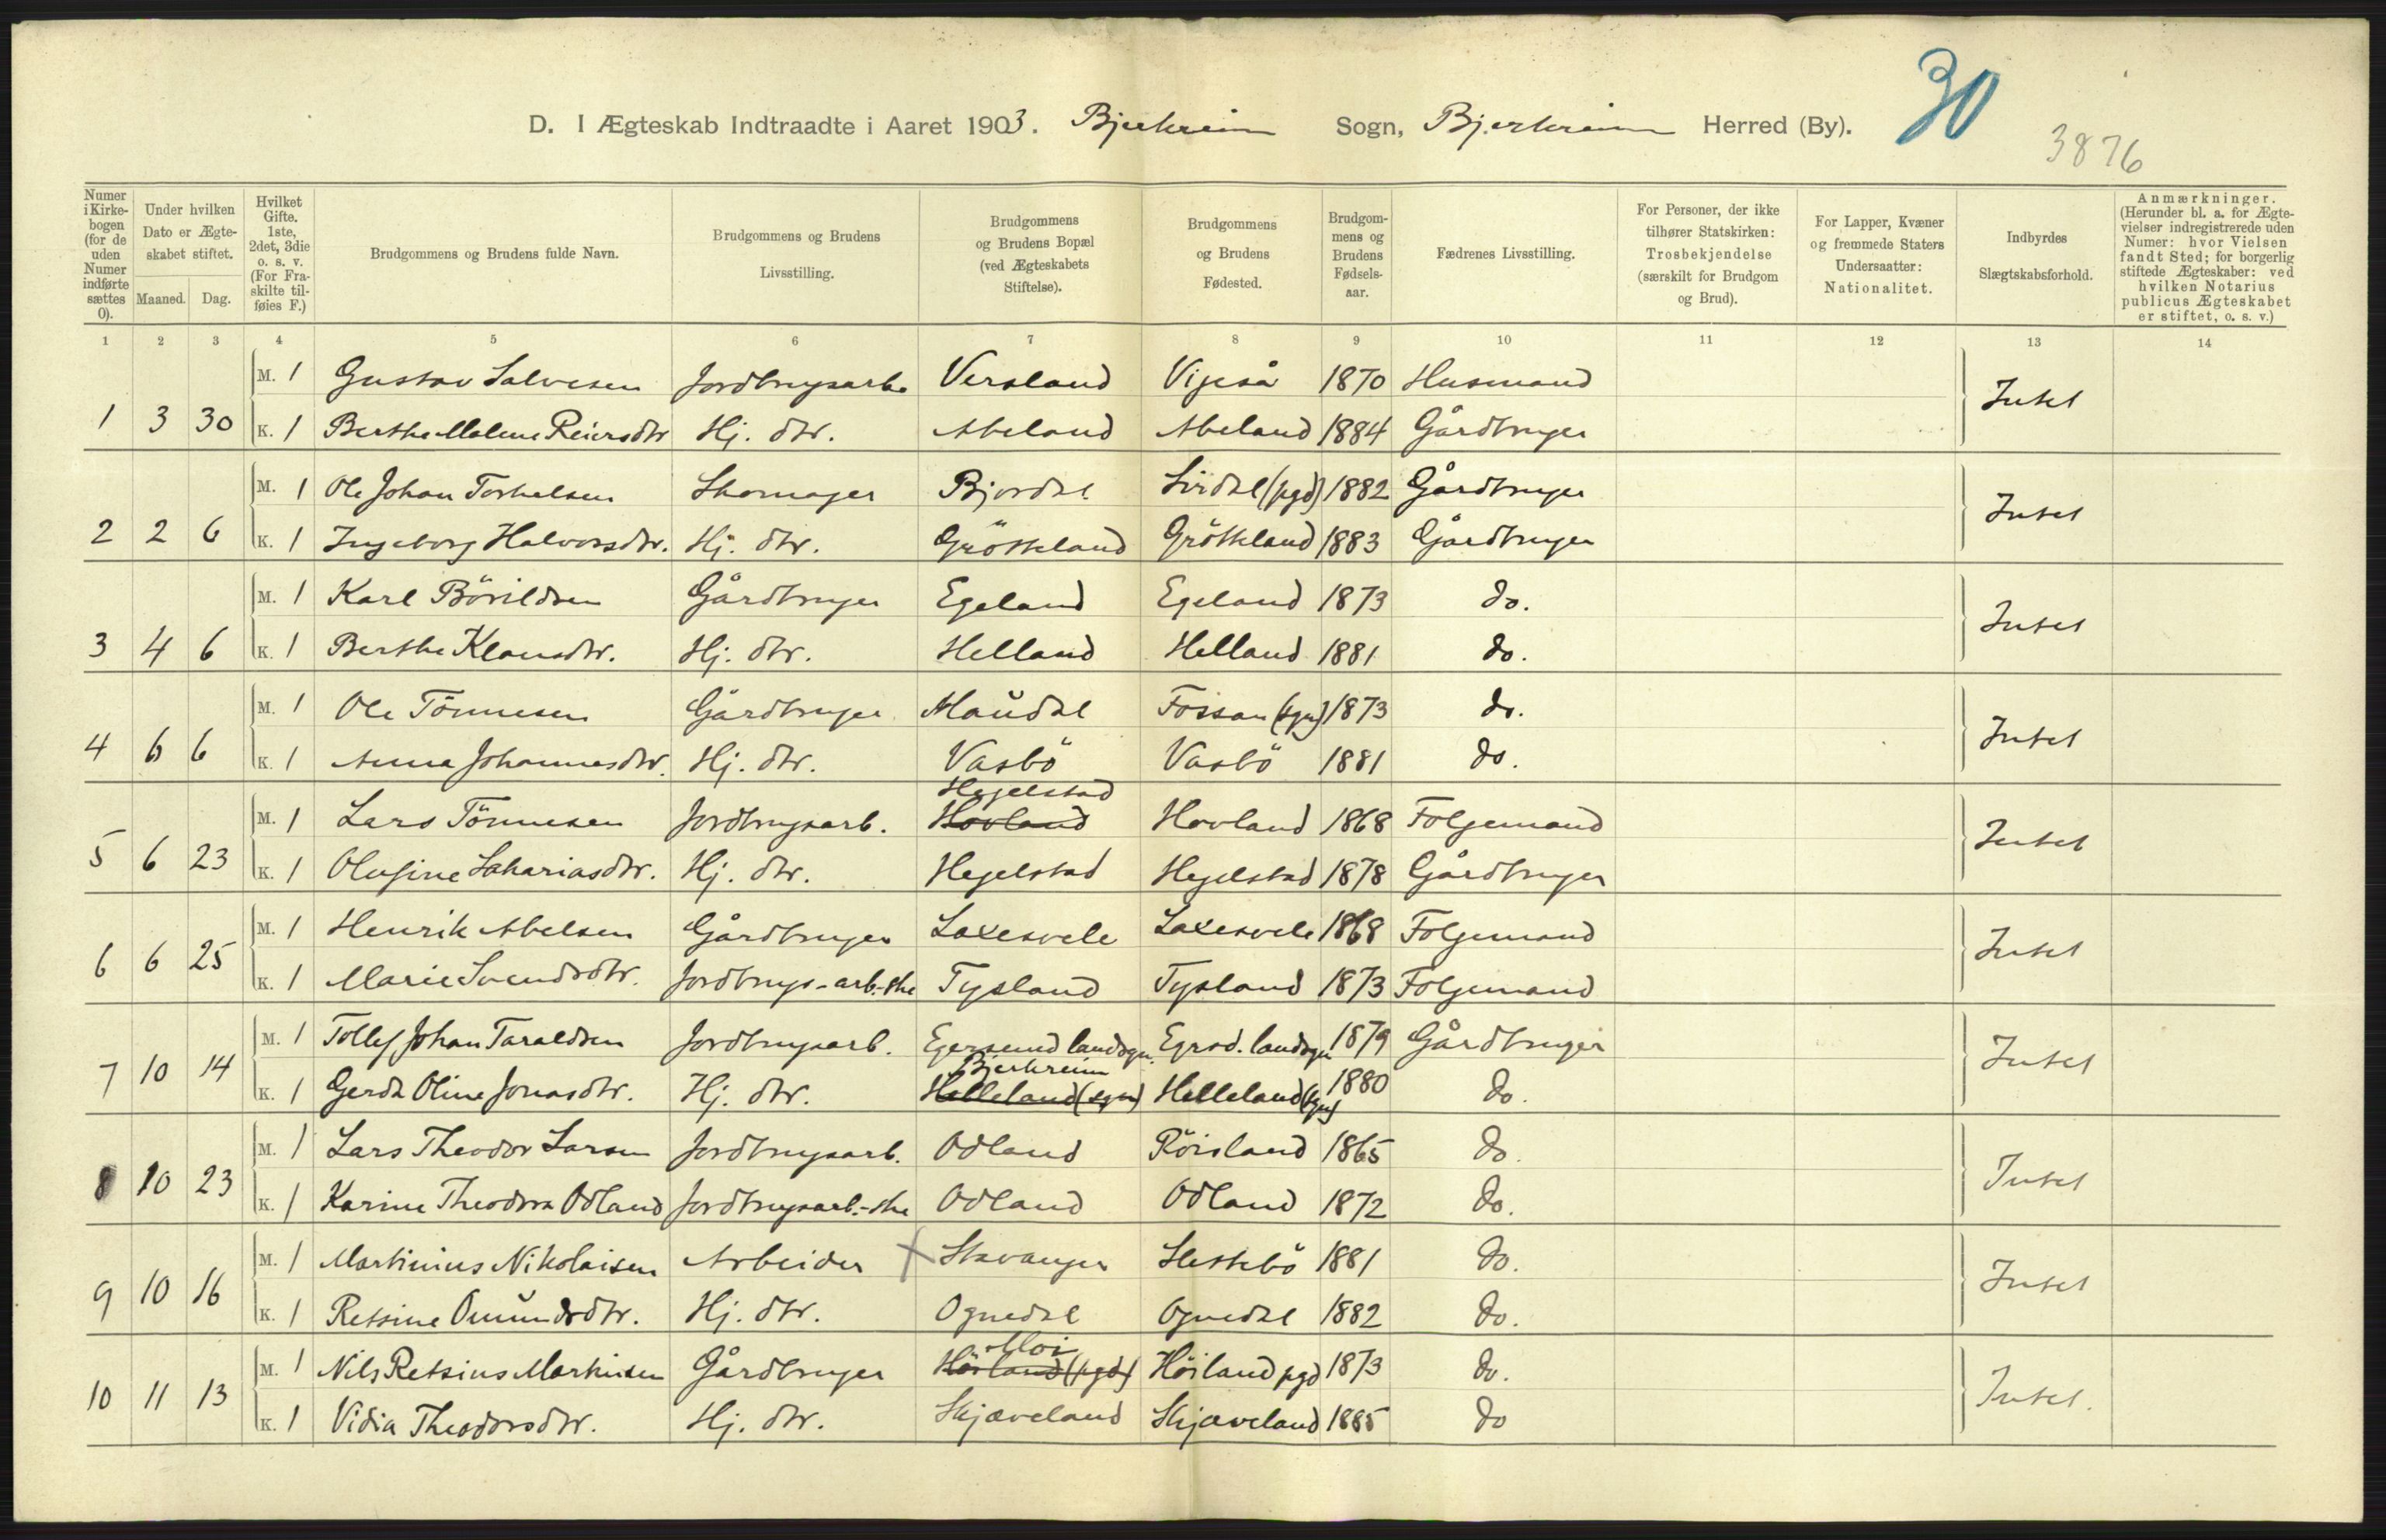 30
D. I Ægteskab Indtraadte i Aaret 1903. Bjerkreim Sogn, Bjerkreim Herred (By).
3876
Numer i Kirkebogen (for de uden Numer indførte sættes 0).
Under hvilken Dato er Ægteskabet stiftet.
Maaned. Dag.
Hvilket Gifte. 1ste, 2det, 3die o. s. v. (For Fraskilte tilføies F.)
Brudgommens og Brudens fulde Navn.
Brudgommens og Brudens Livsstilling.
Brudgommens og Brudens Bopæl (ved Ægteskabets Stiftelse).
Brudgommens og Brudens Fødested.
Brudgommens og Brudens Fødselsaar.
Fædrenes Livsstilling.
For Personer, der ikke tilhører Statskirken: Trosbekjendelse (særskilt for Brudgom og Brud).
For Lapper, Kvæner og fremmede Staters Undersaatter: Nationalitet.
Indbyrdes Slægtskabsforhold.
Anmærkninger. (Herunder bl. a. for Ægtevielser indregistrerede uden Numer: hvor Vielsen fandt Sted; for borgerlig stiftede Ægteskaber: ved hvilken Notarius publicus Ægteskabet er stiftet, o. s. v.)
1 2 3 4 5 6 7 8 9 10 11 12 13 14
M. 1 Gustav Salvesen Jordbrugsarb. Versland Vigeså 1870 Husmand
1 3 30 K. 1 Berthe Malene Reiersdtr Hj. dtr. Abeland Abeland 1884 Gårdbruger Intet
M. 1 Ole Johan Torkelsen Skomager Bjordal Sirdal (pgd) 1882 Gårdbruger
2 2 6 K. 1 Ingeborg Halvorsdtr. Hj. dtr. Grötteland Grötteland 1883 Gårdbruger Intet
M. 1 Karl Börildsen Gårdbruger Egeland Egeland 1873 do.
3 4 6 K. 1 Berthe Klausdtr. Hj. dtr. Helland Helland 1881 do. Intet
M. 1 Ole Tönnesen Gårdbruger Maudal Fossan (sgn) 1873 do.
4 6 6 K. 1 Anna Johannesdtr. Hj. dtr. Vasbö Vasbö 1881 do. Intet
Hegelstad
M. 1 Lars Tönnesen Jordbrugsarb. Hovland Hovland 1868 Folgemand
5 6 23 K. 1 Olufine Sakariasdtr. Hj. dtr. Hegelstad Hegelstad 1878 Gårdbruger Intet
M. 1 Henrik Abelsen Gårdbruger Laxesvele Laxesvele 1868 Folgemand
6 6 25 K. 1 Marie Svendsdtr. Jordbrugs-arb.-ske Tysland Tysland 1873 Folgemand Intet
M. 1 Tollef Johan Taraldsen Jordbrugsarb. Egersund landsgn. Egrsd. landsgn 1879 Gårdbruger
Bjerkreim
7 10 14 K. 1 Gerda Oline Jonasdtr. Hj. dtr. Helleland (sgn) Helleland (sgn) 1880 do. Intet
M. 1 Lars Theodor Larsen Jordbrugsarb. Odland Röisland 1865 do.
8 10 23 K. 1 Karine Theodora Odland Jordbrugsarb.-ske Odland Odland 1872 do. Intet
M. 1 Martinius Nikolaisen Arbeider × Stavanger Slettebö 1881 do.
9 10 16 K. 1 Retsine Omundsdtr. Hj. dtr. Ognedal Ognedal 1882 do. Intet
Moi
M. 1 Nils Retsius Martinsen Gårdbruger Höiland (pgd) Höiland pgd 1873 do.
10 11 13 K. 1 Vidia Theodorsdtr. Hj. dtr. Skjæveland Skjæveland 1885 do Intet.